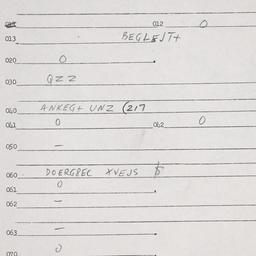 012 0
013 BEGLEJT+
020 0
030 QZZ
040 ANKEG+ UNZ (217
041 0 042 0
050 –
060 DOERGREC XVEJS $
061 0
062 –
063 –
070 0